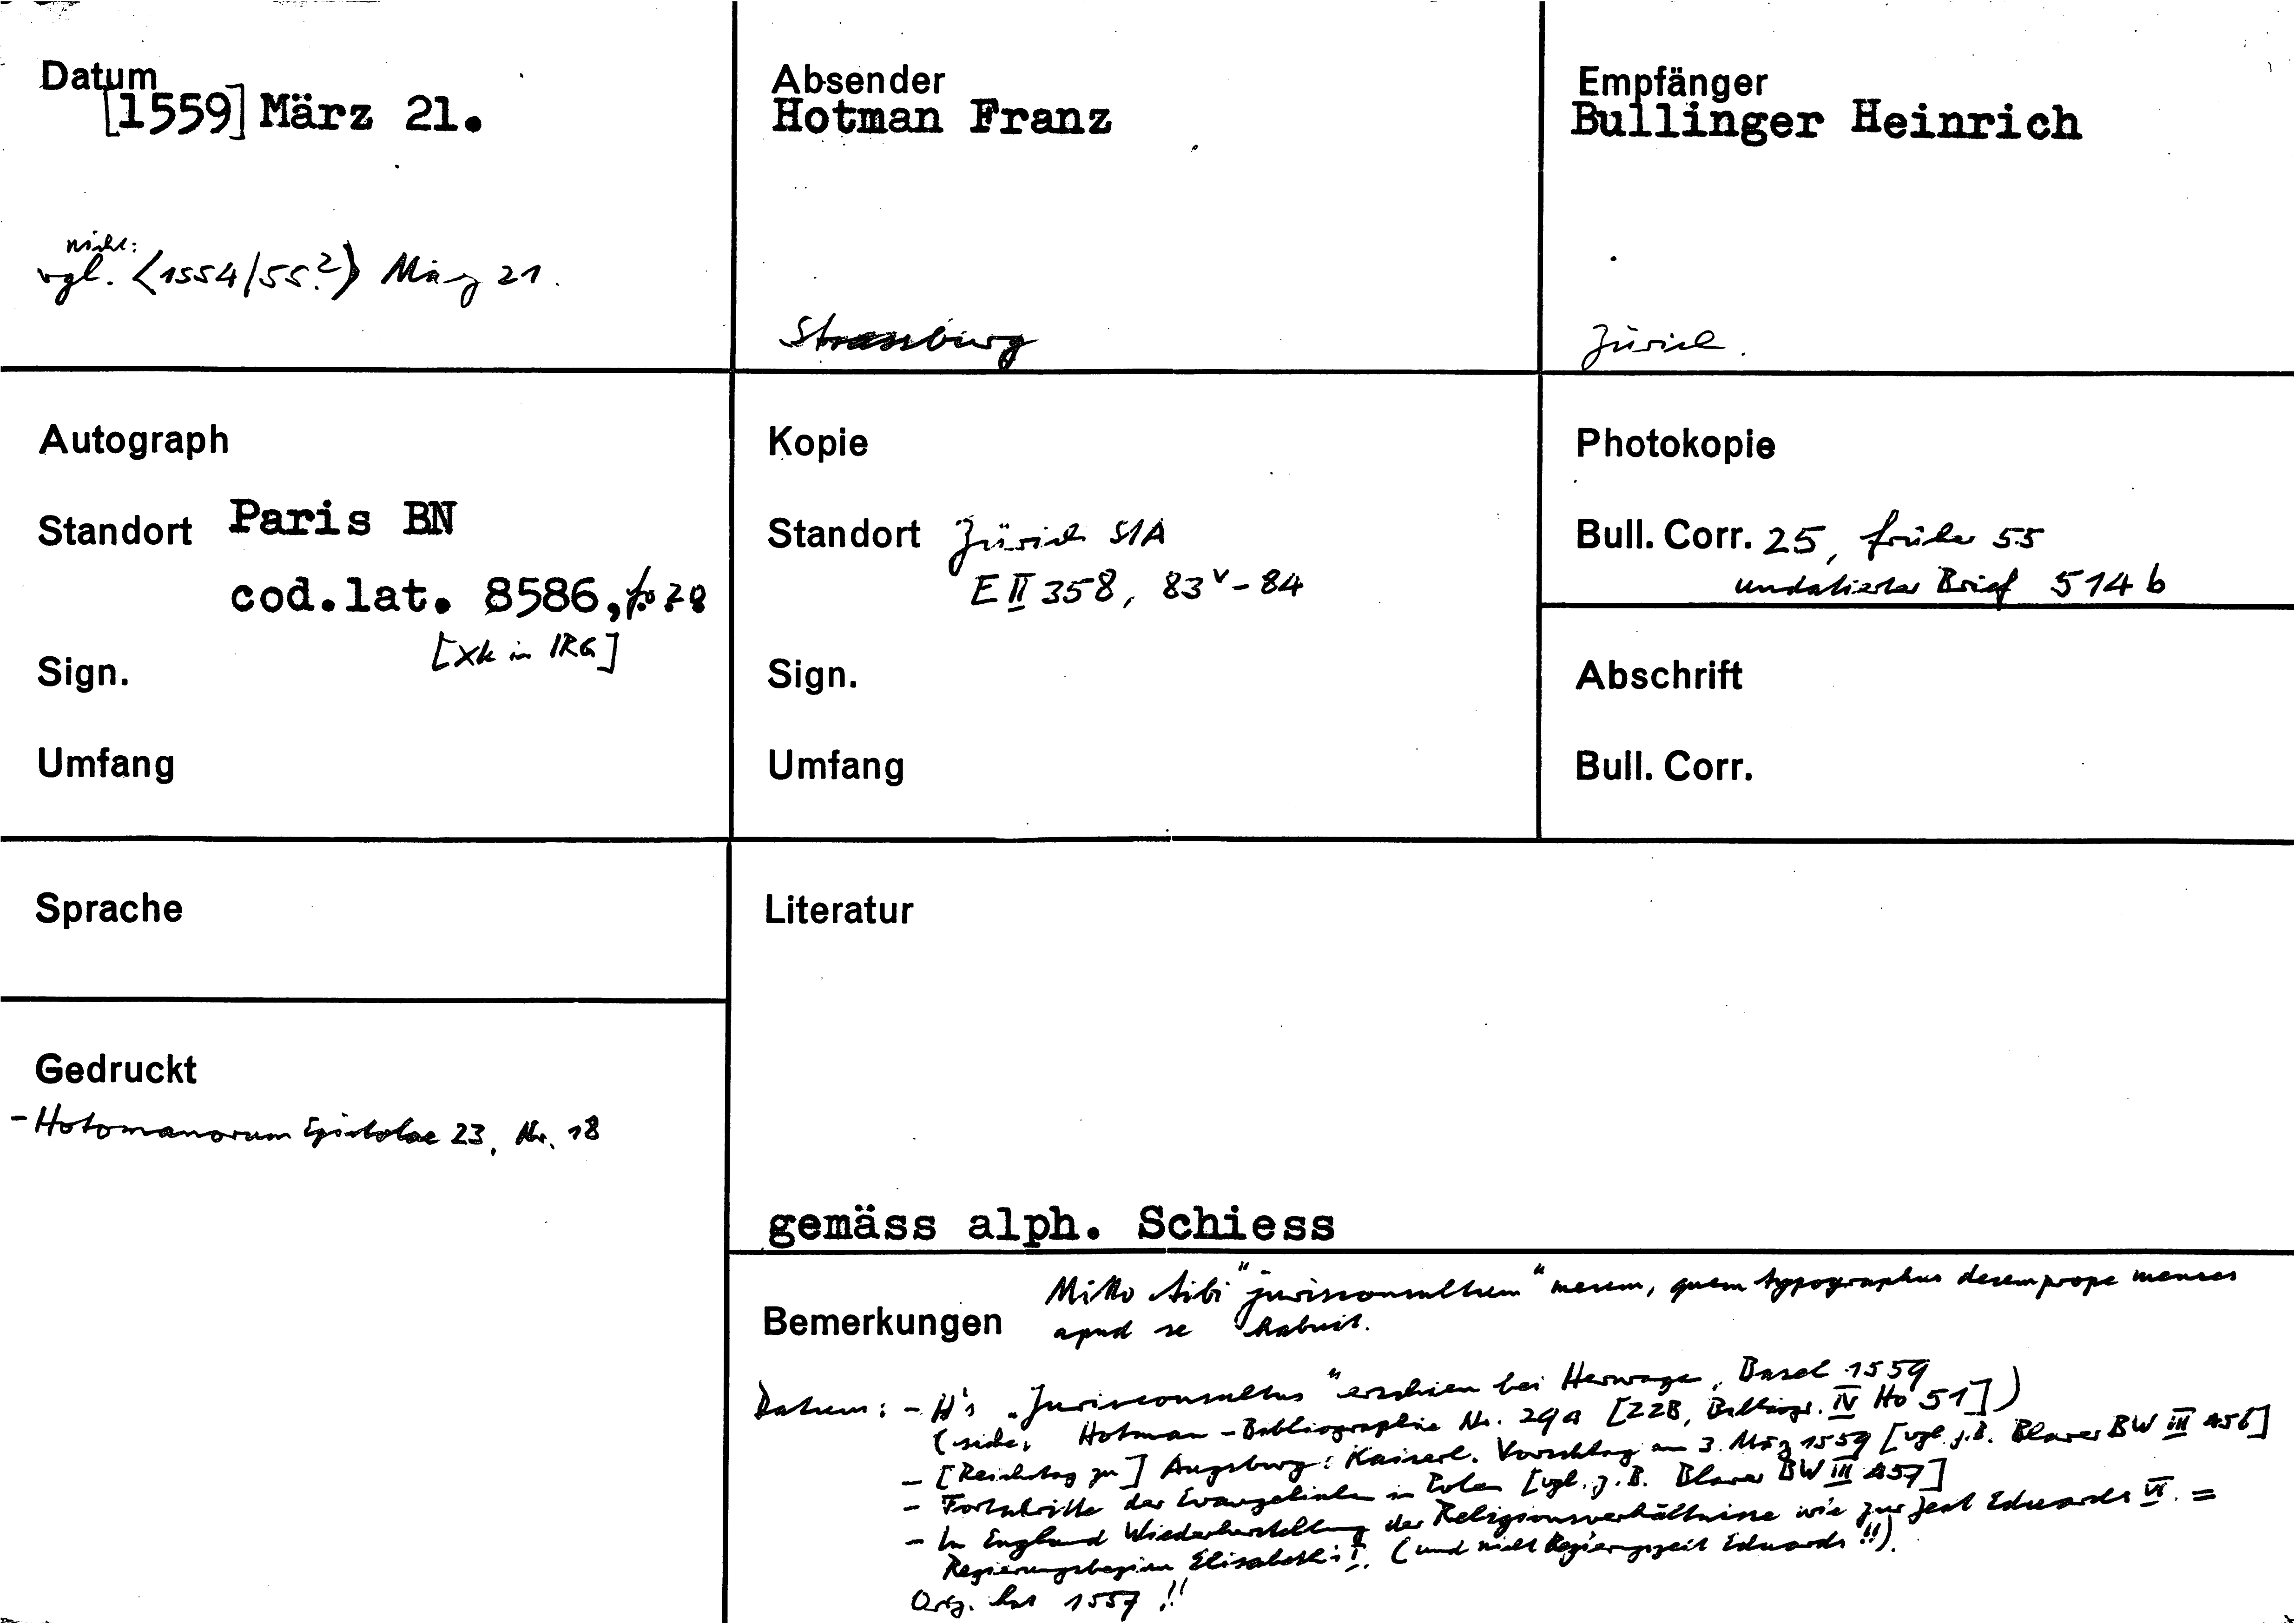 Datum
[1559] März 21.
nicht:
vgl. <1554/55?> März 21.
Absender
Hotman Franz
Strassburg
Empfänger
Bullinger Heinrich
Zürich.
Autograph
Standort Paris BN
cod.lat. 8586, fo 20
[Xk in IRG]
Sign.
Umfang
Kopie
Standort Zürich StA
E II 358, 83v-84
Sign.
Umfang
Photokopie
Bull. Corr. 25, früher 55
undatierter Brief 514b
Abschrift
Bull. Corr.
Sprache
Gedruckt
- Hotomanorum Epistolae 23, Nr. 18
Literatur
gemäss alph. Schiess
Bemerkungen
Mitto tibi "jurisconsultum" meum, quem typographus decem prope menses
apud se habuit.
Datum: - H's "Jurisconsultus" erschien bei Herwagen, Basel 1559
(siehe Hotman-Bibliographie Nr. 29a [ZZB, Bibliogr. IV Ho 51])
- [Reichstag zu] Augsburg: Kaiserl. Vorschlag am 3. März 1559 [vgl. z.B. Blarer BW III 456]
- Fortschritte der Evangelischen in Polen [vgl. z.B. Blarer BW III 457]
- In England Wiederherstellung der Religionsverhältnisse wie zur Zeit Edwards VI. =
Regierungsbeginn Elisabeths I. (und nicht Regierungszeit Edwards!!).
Orig. hat 1557!!